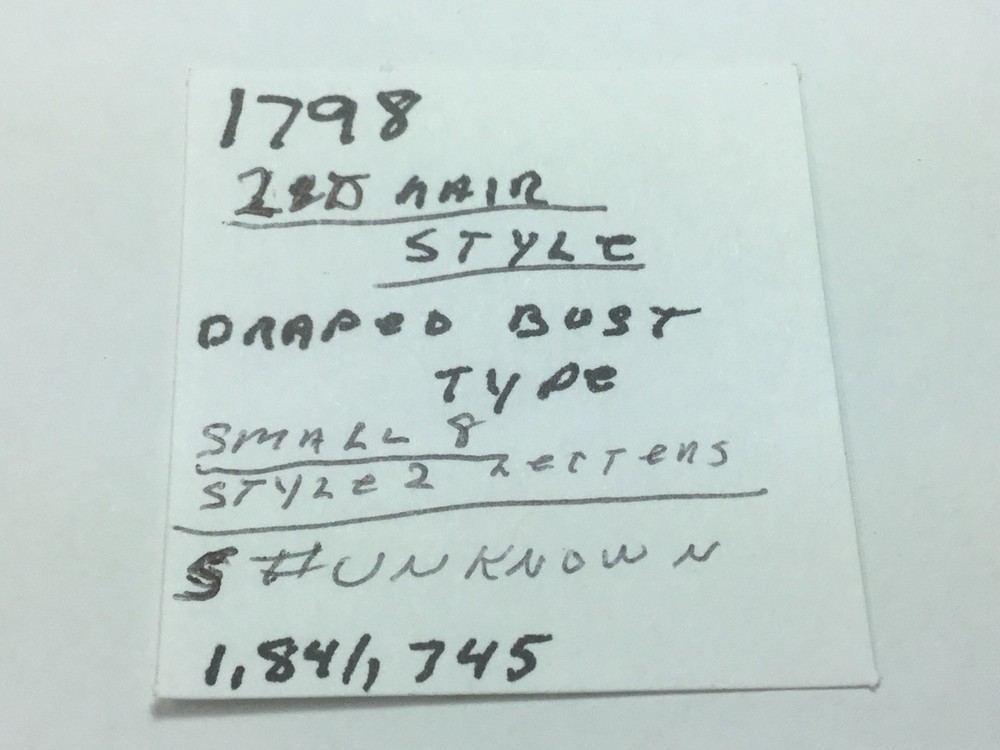 1798
2ND HAIR
STYLE
DRAPED BUST
TYPE
SMALL 8
STYLE 2 LETTERS
S # UNKNOWN
1,841,745